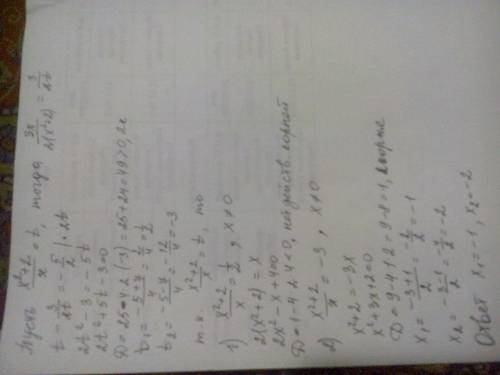 Пусть (x²+2)/x = t, тогда 3x/(2(x²+2)) = 3/(2t)
t - 3/(2t) = -5/2 | · 2t
2t² - 3 = -5t
2t² + 5t - 3 = 0
D = 25 + 4 · 2 · (-3) = 25 + 24 = 49 > 0, 2к
t₁ = (-5+7)/4 = 2/4 = 1/2
t₂ = (-5-7)/4 = -12/4 = -3
т.к. (x²+2)/x = t, то
1) (x²+2)/x = 1/2, x ≠ 0
2(x²+2) = x
2x² - x + 4 = 0
D = 1 - 4 · 2 · 4 < 0, нет действ. корней
2) (x²+2)/x = -3, x ≠ 0
x² + 2 = -3x
x² + 3x + 2 = 0
D = 9 - 4 · 1 · 2 = 9 - 8 = 1, 2 корня
x₁ = (-3+1)/2 = -2/2 = -1
x₂ = (-3-1)/2 = -4/2 = -2
Ответ x₁ = -1, x₂ = -2